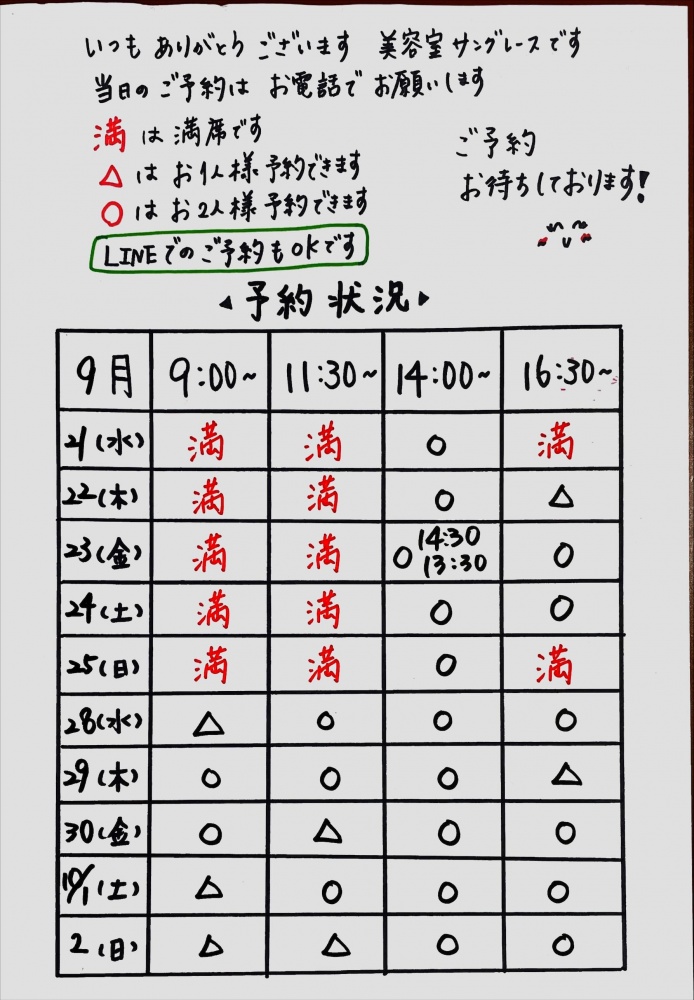 いつも ありがとう ございます 美容室 サングレースです
当日の ご予約は お電話で お願いします
満 は 満席です
△ は お1人様 予約できます
○ は お2人様 予約できます
LINEでの ご予約も OKです
ご予約
お待ちしております!
予約状況
9月 9:00~ 11:30~ 14:00~ 16:30~
21(水) 満 満 ○ 満
22(木) 満 満 ○ △
23(金) 満 満 ○ 14:30 13:30 ○
24(土) 満 満 ○ ○
25(日) 満 満 ○ 満
28(水) △ ○ ○ ○
29(木) ○ ○ ○ △
30(金) ○ △ ○ ○
10/1(土) △ ○ ○ ○
2(日) △ △ ○ ○